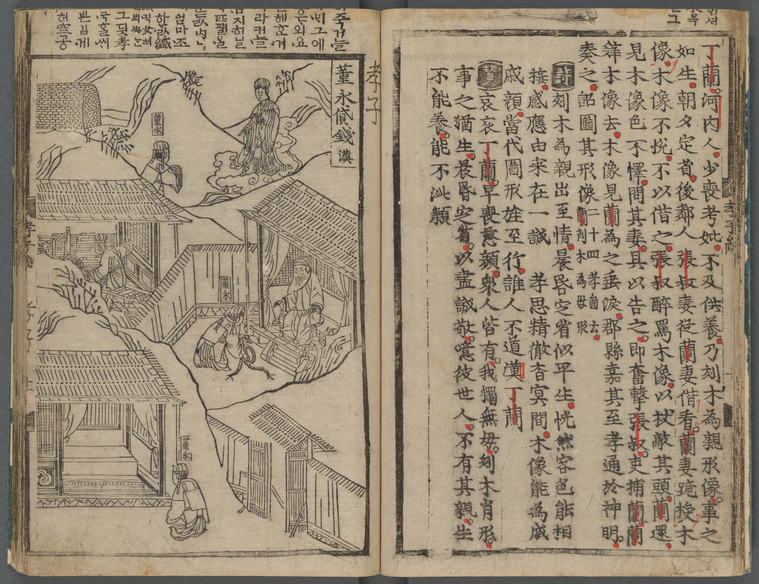 丁蘭河內人少喪考妣不及供養乃刻木為親形像事之
如生朝夕定省後鄰人張叔妻從蘭妻借看蘭妻跪投木
像木像不悅不以借之張叔醉罵木像以杖敲其頭蘭還
見木像色不懌問其妻具以告之即奮擊張叔吏捕蘭蘭
辭木像去木像見蘭為之垂淚郡縣嘉其至孝通於神明
奏之詔圖其形像二十四孝啚云蘭刻木為母形
詩刻木為親出至情晨昏定省似平生恍然容色能相
接感應由來在一誠 孝思精徹杳冥間木像能為戚
戚顔當代圖形旌至行誰人不道漢丁蘭
贊哀哀丁蘭早喪慈顔衆人皆有我獨無母刻木肖形
事之猶生晨昏定省以盡誠敬噫彼世人不有其親生
不能養能不泚顙
孝子
董永貸錢 漢
董永
董永
董永